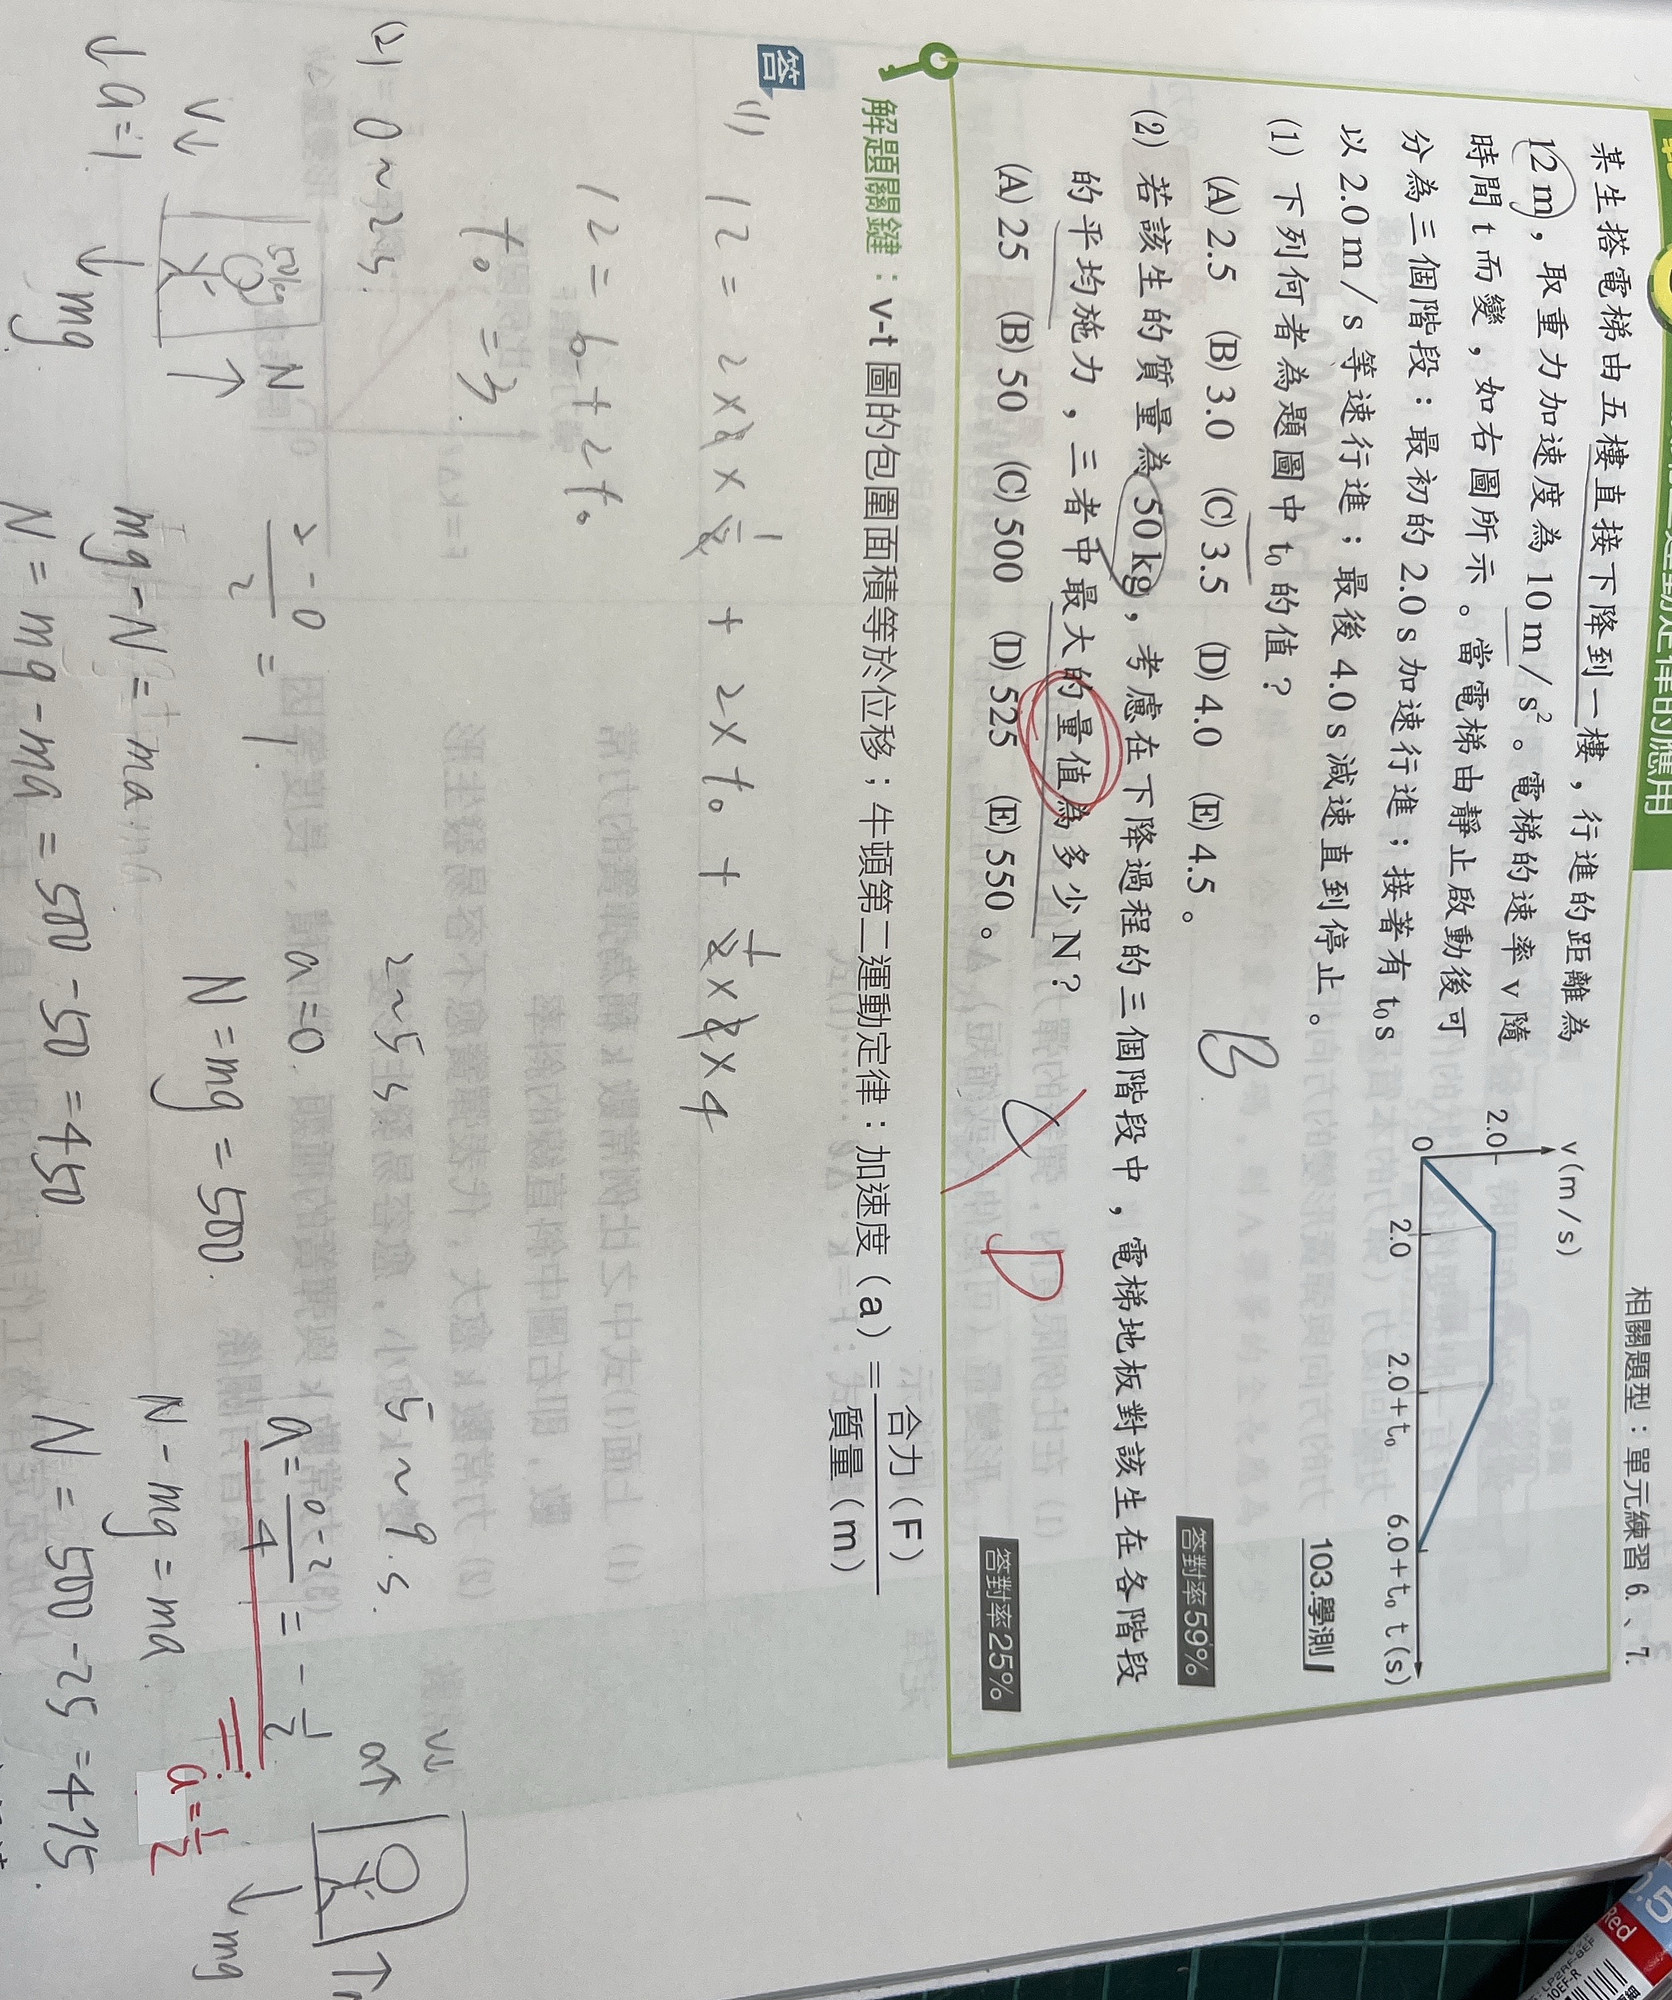 運動定律的應用
相關題型：單元練習 6.、7.
某生搭電梯由五樓直接下降到一樓，行進的距離為
12 m，取重力加速度為 10 m/s²。電梯的速率 v 隨
時間 t 而變，如右圖所示。當電梯由靜止啟動後可
分為三個階段：最初的 2.0 s 加速行進；接著有 t₀ s
以 2.0 m/s 等速行進；最後 4.0 s 減速直到停止。
v(m/s)
2.0
0
2.0
2.0+t₀
6.0+t₀
t(s)
103.學測
(1) 下列何者為題圖中 t₀ 的值？
(A) 2.5 (B) 3.0 (C) 3.5 (D) 4.0 (E) 4.5。
B
答對率59%
(2) 若該生的質量為 50 kg，考慮在下降過程的三個階段中，電梯地板對該生在各階段
的平均施力，三者中最大的量值為多少 N？
(A) 25 (B) 50 (C) 500 (D) 525 (E) 550。
C D
答對率25%
解題關鍵：v-t 圖的包圍面積等於位移；牛頓第二運動定律：加速度（a）＝合力（F）
質量（m）
答
(1) 12 = 2×2×1/2 + 2×t₀ + 1/2×2×4
12 = 6 + 2t₀
t₀ = 3.
(2) 0~2s.
2-0/2 = 1
v↓
50kg
N
↓a=1
↓mg
mg-N=ma
N=mg-ma=500-50=450
2~5s
a=0.
N=mg=500.
5~9s.
a=0-2/4=-1/2
a=1/2
N-mg=ma
N=500-25=475.
v↓
a↑
↓mg
0.5
Red